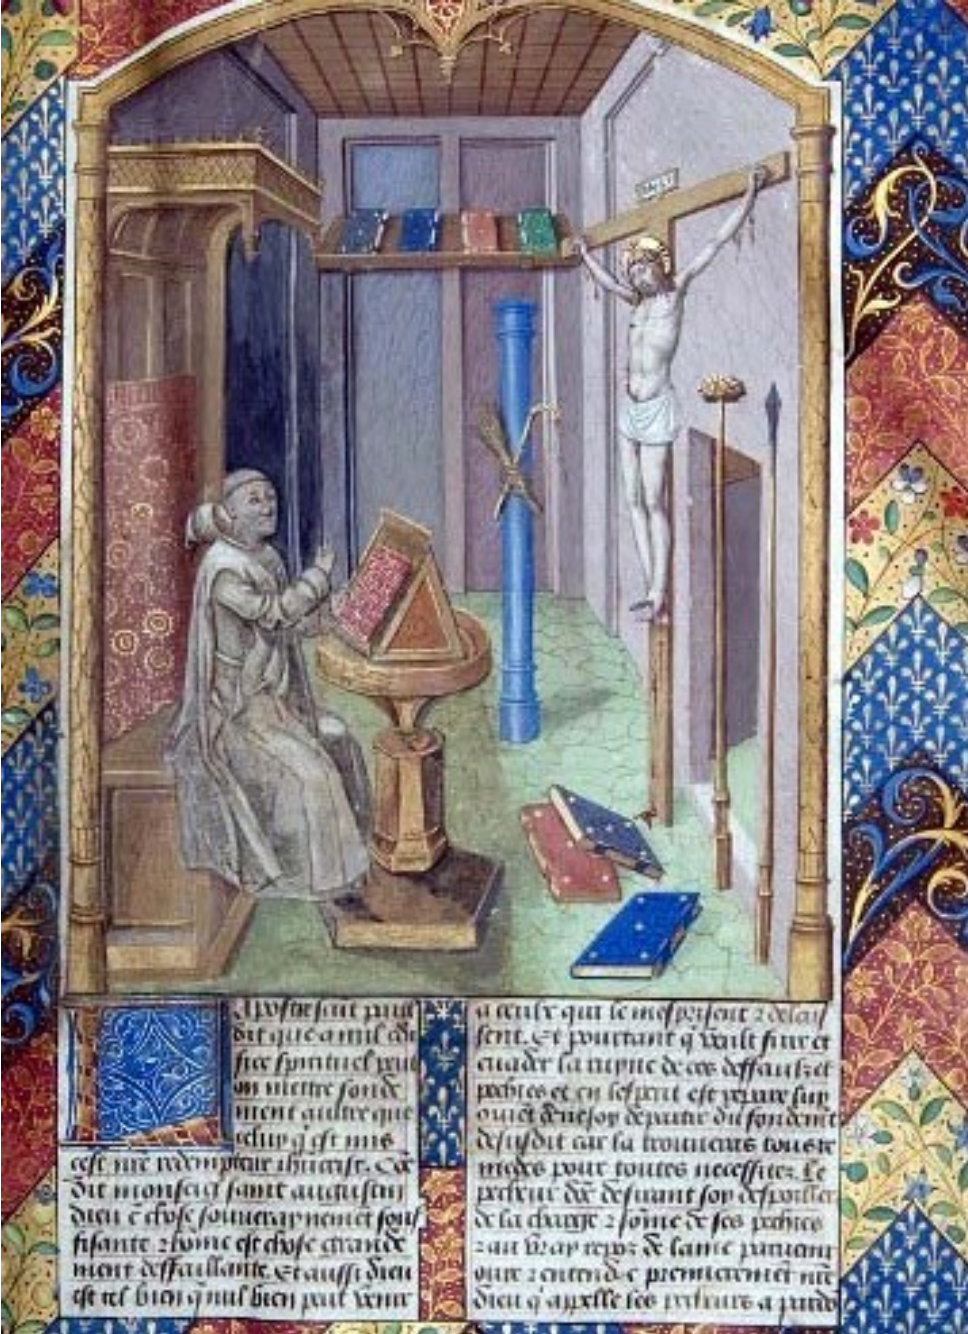 INRI
Apostre saint paul
dit que a nul edi
fice spirituel peut
on mettre fonde
ment aultre que
celuy q̄ est mis
cest nr̄e redempteur ihūcrist. Cōe
dit monseigr̄ saint augustin
dieu ē chose souueraynemēt souf
fisante ⁊ home est chose grande
ment deffaillante. Et aussi dieu
est tel bien q̄ nul bien peut venir
a ceulx qui le mesprisent ⁊ delais
sent. Et pourtant q̄ voult fuir et
euader la ruyne de ces deffaulx et
pechies et en lesperit est
departir du fondemēt
desusdit car la trouueras tous re
medes pour toutes necessitez. Le
pecheur desirant soy despoiller
de la charge ⁊ sōme de ses pechies
⁊ au vray repoz de lame paruenir
oye ⁊ entende premieremēt nr̄e
dieu q̄ appelle les pecheurs a pardō